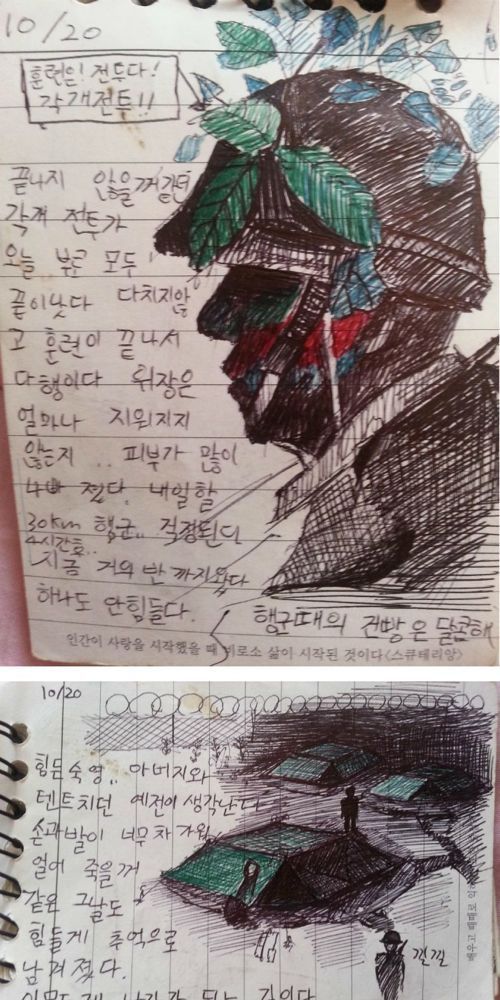 10/20
훈련은! 전투다!
각개전투!!
끝나지 않을꺼같던
각개 전투가
오늘 부로 모두
끝이낫다 다치지않
고 훈련이 끝나서
다행이다 위장은
얼마나 지워지지
않는지.. 피부가 많이
졌다. 내일할
30km 행군.. 걱정된다
4시간후..
지금 거의 반까지왔다
하나도 안힘들다.
행군때의 건빵은 달콤해
인간이 사랑을 시작했을 때 비로소 삶이 시작된 것이다<스큐테리앙>
10/20
힘든숙영.. 아버지와
텐트치던 예전이생각난다
손과발이 너무차가워
얼어 죽을꺼
같은 그날도
힘들게 추억으로
남겨졌다.
낄낄